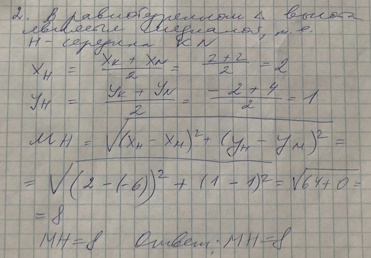 2. В равнобедренном Δ высота
является медианой, т.е.
H - середина KN
x_H = (x_K + x_N)/2 = (2+2)/2 = 2
y_H = (y_K + y_N)/2 = (-2+4)/2 = 1
MH = √((x_H - x_M)² + (y_H - y_M)²) =
= √((2-(-6))² + (1-1)²) = √(64+0) =
= 8
MH = 8 Ответ: MH = 8